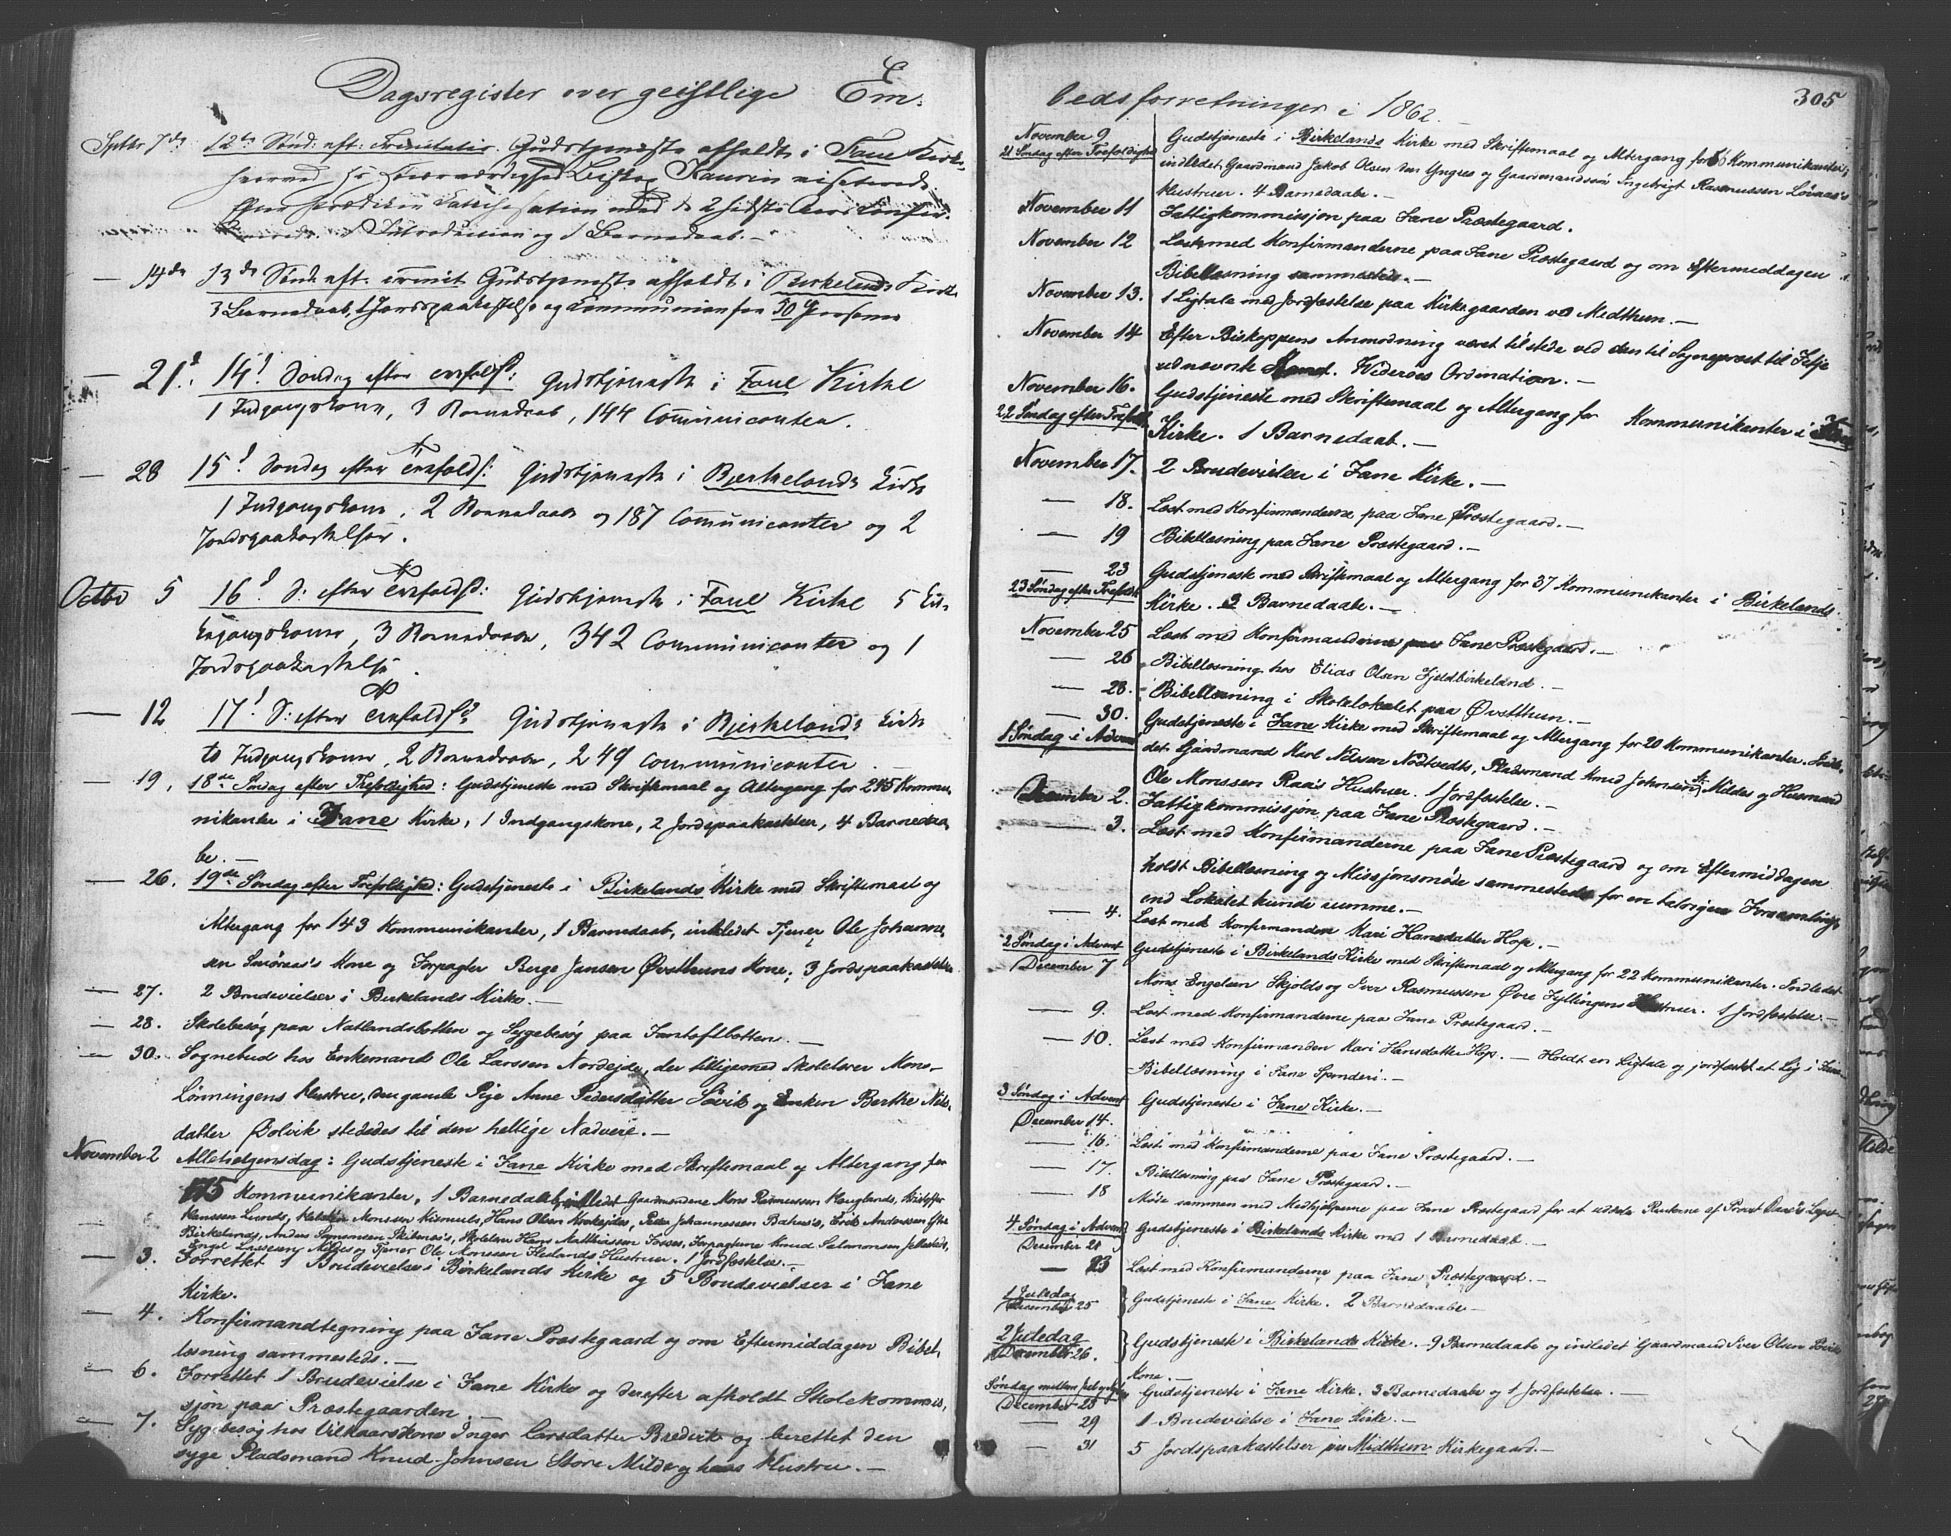 Dagsregister over geistlige Em-
Septbr 7de 12te Sønd. eft. Trinitatis. Gudstjeneste afholdt i Fane Kirke
hvorved Biskop Kaurin visiterede
Introduction og 1 Barnedaab. —
— 14de 13de Sønd. eft. Gudstjeneste afholdt i Birkelands Kirke
3 Barnedaab, 1 Jordspaakastelse og Communion for 50 Personer
— 21. 14d Søndag efter Trefoldh: Gudstjeneste i Fane Kirke
1 Indgangskone, 3 Barnedaab, 144 Communicanter.
— 28 15d Søndag efter Trefoldh: Gudstjeneste i Bierkelands Kirke
1 Indgangskone, 2 Barnedaab og 187 Communicanter og 2
Jordspaakastelser.
Octbr 5 16d S: efter Trefoldh: Gudstjeneste i Fane Kirke 5 Ind-
gangskoner, 3 Barnedaab, 342 Communicanter og 1
Jordspaakastelse.
— 12 17d S: efter Trefoldh: Gudstjeneste i Bierkelands Kirke
to Indgangskoner, 2 Barnedaab, 249 Communicanter.
— 19. 18de Søndag efter Trefoldighed: Gudstjeneste med Skriftemaal og Altergang for 245 Kommu-
nikanter i Fane Kirke, 1 Indgangskone, 2 Jordspaakastelser, 4 Barnedaa-
be. —
— 26. 19de Søndag efter Trefoldighed: Gudstjeneste i Birkelands Kirke med Skriftemaal og
Altergang for 143 Kommunikanter, 1 Barnedaab, inledet Tjener Ole Johanne-
sen Smøraas's Kone og Forpagter Berge Jansen Øvsthuns Kone; 3 Jordspaakastelser
— 27. 2 Brudevielser i Birkelands Kirke. —
— 28. Skolebesøg paa Natlandsbotten og Sygebesøg paa Fantoftbotten. —
— 30. Sognebud hos Enkemand Ole Larssen Nordejde, der tilligemed Skolelærer Mons
Lønningens Hustru, den gamle Pige Anne Pedersdatter Søvik og Enken Berthe Nils-
datter Dolvik stededes til den hellige Nadvere. —
November 2 Allehelgensdag: Gudstjeneste i Fane Kirke med Skriftemaal og Altergang for
175 Kommunikanter, 1 Barnedaab, indledet Gaardmændene Mons Rasmussen Hauglands, Kristoffer
Hanssen Lunds, Monssen Kismuls, Hans Olsen Kirkejdes, Johannessen Erik Anderssen
Birkelands, Anders Skolelær. Hans Matthiassen Fosses, Forpagterne Knud Salamonsen
Mildes og Tjener Ole Monssen Heslands Hustruer. 1 Jordfæstelse. —
— 3. Forrettet 1 Brudevielse i Birkelands Kirke og 5 Brudevielser i Fane
Kirke.
— 4. Konfirmandtegning paa Fane Præstegaard og om Eftermiddagen Bibel-
læsning sammesteds. —
— 6. Forrettet 1 Brudevielse i Fane Kirke og derefter afholdt Skolekommis-
sjon paa Præstegaarden. —
— 7. Sygebesøg hos Vilkaarskone Inger Larsdatter Bredvik og berettet den
syge Pladsmand Knud Johnsen Store Milde og hans Hustru. —
bedsforretninger i 1862.
305
November 9 Gudstjeneste i Birkelands Kirke med Skriftemaal og Altergang for Kommunikanter,
21 Søndag efter Trefoldighed indledet Gaardmand Jakob Olsen og Gaardmandssøn Ingebrigt Rasmussen
Hustruer. 4 Barnedaabe. —
November 11 Fattigkommissjon paa Fane Præstegaard.
November 12 Læst med Konfirmanderne paa Fane Præstegaard og om Eftermiddagen
Bibellæsning sammesteds. —
November 13. 1 Ligtale med Jordfæstelse paa Kirkegaarden ved Midthun. —
November 14 Efter Biskoppens Anmodning været tilstede ved den til Sognepræst til
udnævnte Kand. Widerøes Ordination. —
November 16. Gudstjeneste med Skriftemaal og Altergang for Kommunikanter i Fane
22 Søndag efter Trefold. Kirke. 1 Barnedaab. —
November 17. 2 Brudevielser i Fane Kirke. —
— 18. Læst med Konfirmanderne paa Fane Præstegaard. —
— 19 Bibellæsning paa Fane Præstegaard. —
— 23 Gudstjeneste med Skriftemaal og Altergang for 37 Kommunikanter i Birkelands
23 Søndag efter Trefold. Kirke. 3 Barnedaabe. —
November 25 Læst med Konfirmanderne paa Fane Præstegaard. —
— 26 Bibellæsning hos Elias Olsen Fjeldbirkeland. —
— 28. Bibellæsning i Skolelokalet paa Øvsthun. —
— 30. Gudstjeneste i Fane Kirke med Skriftemaal og Altergang for 20 Kommunikanter. Indle-
1 Søndag i Advent det Gaardmand Karl Nilsen Nødtvedts, Pladsmand Knud Johnsen St. Mildes og Husmand
Ole Monssen Raa's Hustruer. 1 Jordfæstelse. —
December 2. Fattigkommissjon paa Fane Præstegaard. —
— 3. Læst med Konfirmanderne paa Fane Præstegaard og om Eftermiddagen
holdt Bibellæsning og Missjonsmøde sammesteds for en talrigere Forsamling,
end Lokalet kunde rumme. —
— 4. Læst med Konfirmanden Mari Hansdatter Hop. —
2 Søndag i Advent Gudstjeneste i Birkelands Kirke med Skriftemaal og Altergang for 22 Kommunikanter. Indledet
December 7 Mons Engelsen Skjolds og Iver Rasmussen Øvre Fyllingens Hustruer. 1 Jordfæstelse. —
— 9. Læst med Konfirmanderne paa Fane Præstegaard. —
— 10. Læst med Konfirmanden Mari Hansdatter Hop. — Holdt en Ligtale og jordfæstet et Lig i Fane.
Bibellæsning i Fane Spinderi. —
3 Søndag i Advent Gudstjeneste i Fane Kirke. —
December 14.
— 16. Læst med Konfirmanderne paa Fane Præstegaard. —
— 17. Bibellæsning paa Fane Præstegaard. —
— 18 Møde sammen med Medhjelperne paa Fane Præstegaard for at uddele Renterne af Provst Legat. —
4 Søndag i Advent Gudstjeneste i Birkelands Kirke med 1 Barnedaab. —
December 21
— 23 Læst med Konfirmanderne paa Fane Præstegaard. —
1 Juledag
December 25 Gudstjeneste i Fane Kirke. 2 Barnedaabe —
2 Juledag Gudstjeneste i Birkelands Kirke. 9 Barnedaabe og indledet Gaardmand Iver Olsen
December 26. Kone. —
Søndag mellem Jul og Nytaar Gudstjeneste i Fane Kirke. 3 Barnedaabe og 1 Jordfæstelse. —
December 28
— 29 1 Brudevielse i Fane Kirke. —
— 31 5 Jordspaakastelser paa Midthun Kirkegaard. —